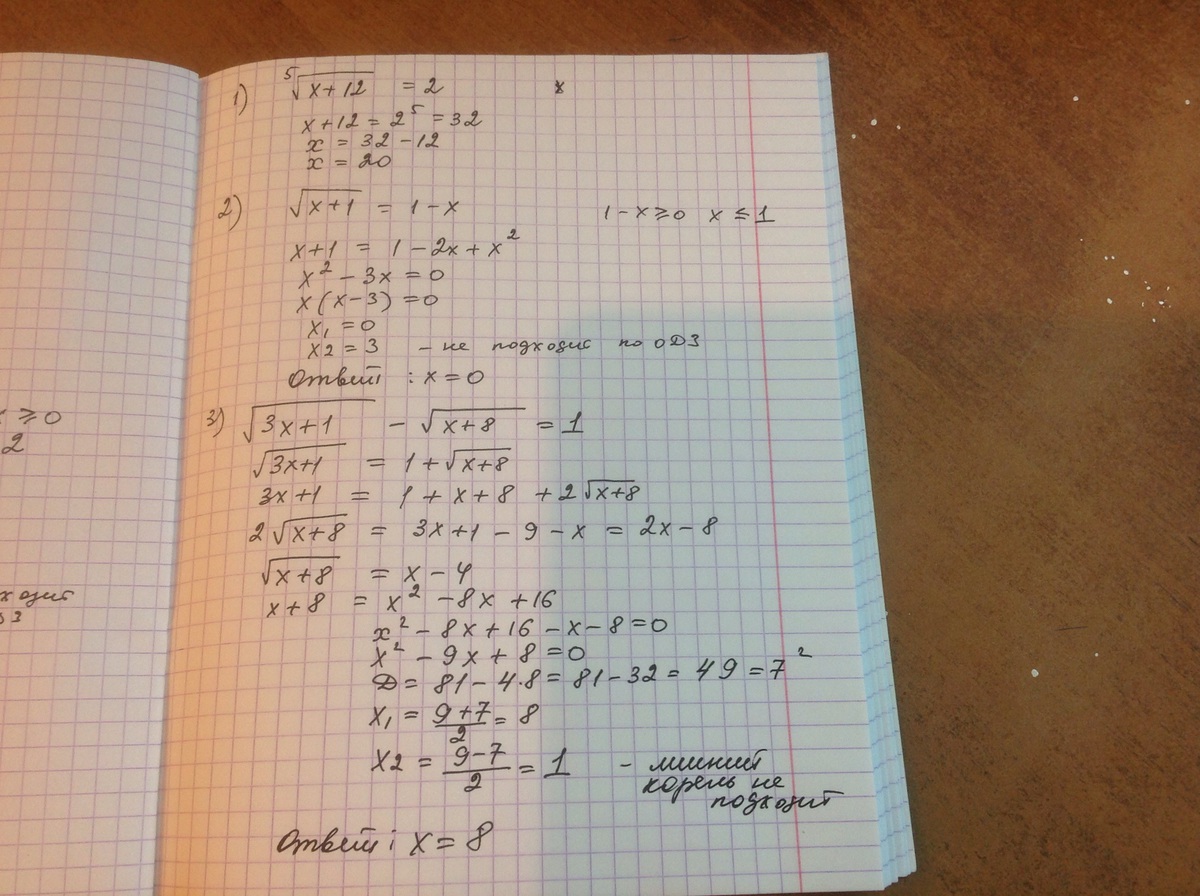 x ≥ 0
2
1) ⁵√(x+12) = 2
x+12 = 2⁵ = 32
x = 32 - 12
x = 20
2) √(x+1) = 1 - x 1 - x ≥ 0 x ≤ 1
x+1 = 1 - 2x + x²
x² - 3x = 0
x(x-3) = 0
x₁ = 0
x2 = 3 - не подходит по ОДЗ
Ответ : x = 0
3) √(3x+1) - √(x+8) = 1
√(3x+1) = 1 + √(x+8)
3x+1 = 1 + x + 8 + 2√(x+8)
2√(x+8) = 3x+1 - 9 - x = 2x - 8
√(x+8) = x - 4
x+8 = x² - 8x + 16
x² - 8x + 16 - x - 8 = 0
x² - 9x + 8 = 0
Д = 81 - 4·8 = 81 - 32 = 49 = 7²
x₁ = (9+7)/2 = 8
x2 = (9-7)/2 = 1 - лишний
корень не
подходит
Ответ : x = 8